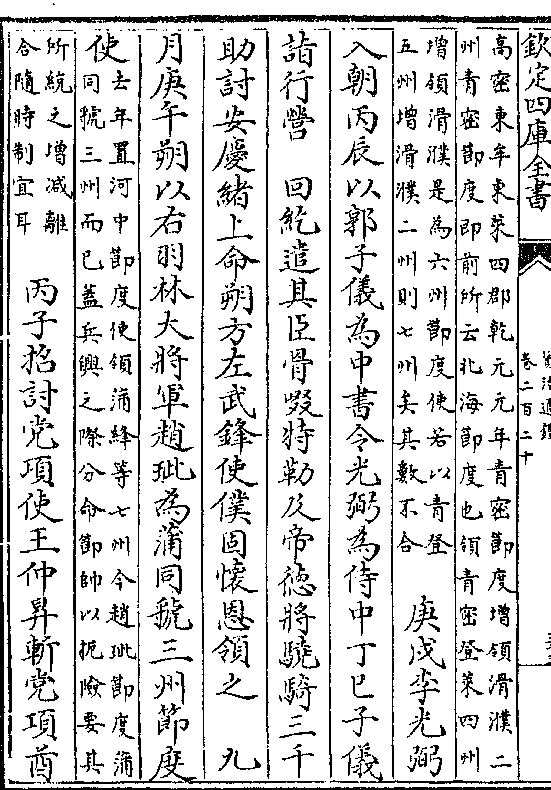 欽定四庫全書
卷二百二十
高密東牟東萊四郡乾元元年青密節度增領滑濮二
州青密節度即前所云北海節度也領青密登萊四州
增領滑濮是為六州節度使若以青登
五州增滑濮二州則七州矣其數不合
庚戌李光弼
入朝丙辰以郭子儀為中書令光弼為侍中丁巳子儀
詣行營　回紇遣其臣骨啜特勒及帝德將驍騎三千
助討安慶緒上命朔方左武鋒使僕固懷恩領之　九
月庚午朔以右羽林大將軍趙玼為蒲同虢三州節度
使
去年置河中節度使領蒲絳等七州今趙玼節度蒲
同虢三州而已蓋兵興之際分命節帥以扼險要其
所統之增減離
合隨時制宜耳
丙子招討党項使王仲昇斬党項酋